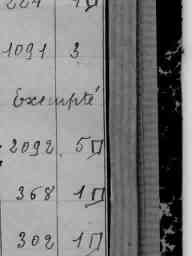 1091 3
Exempté
2092 5
368 1
302 1